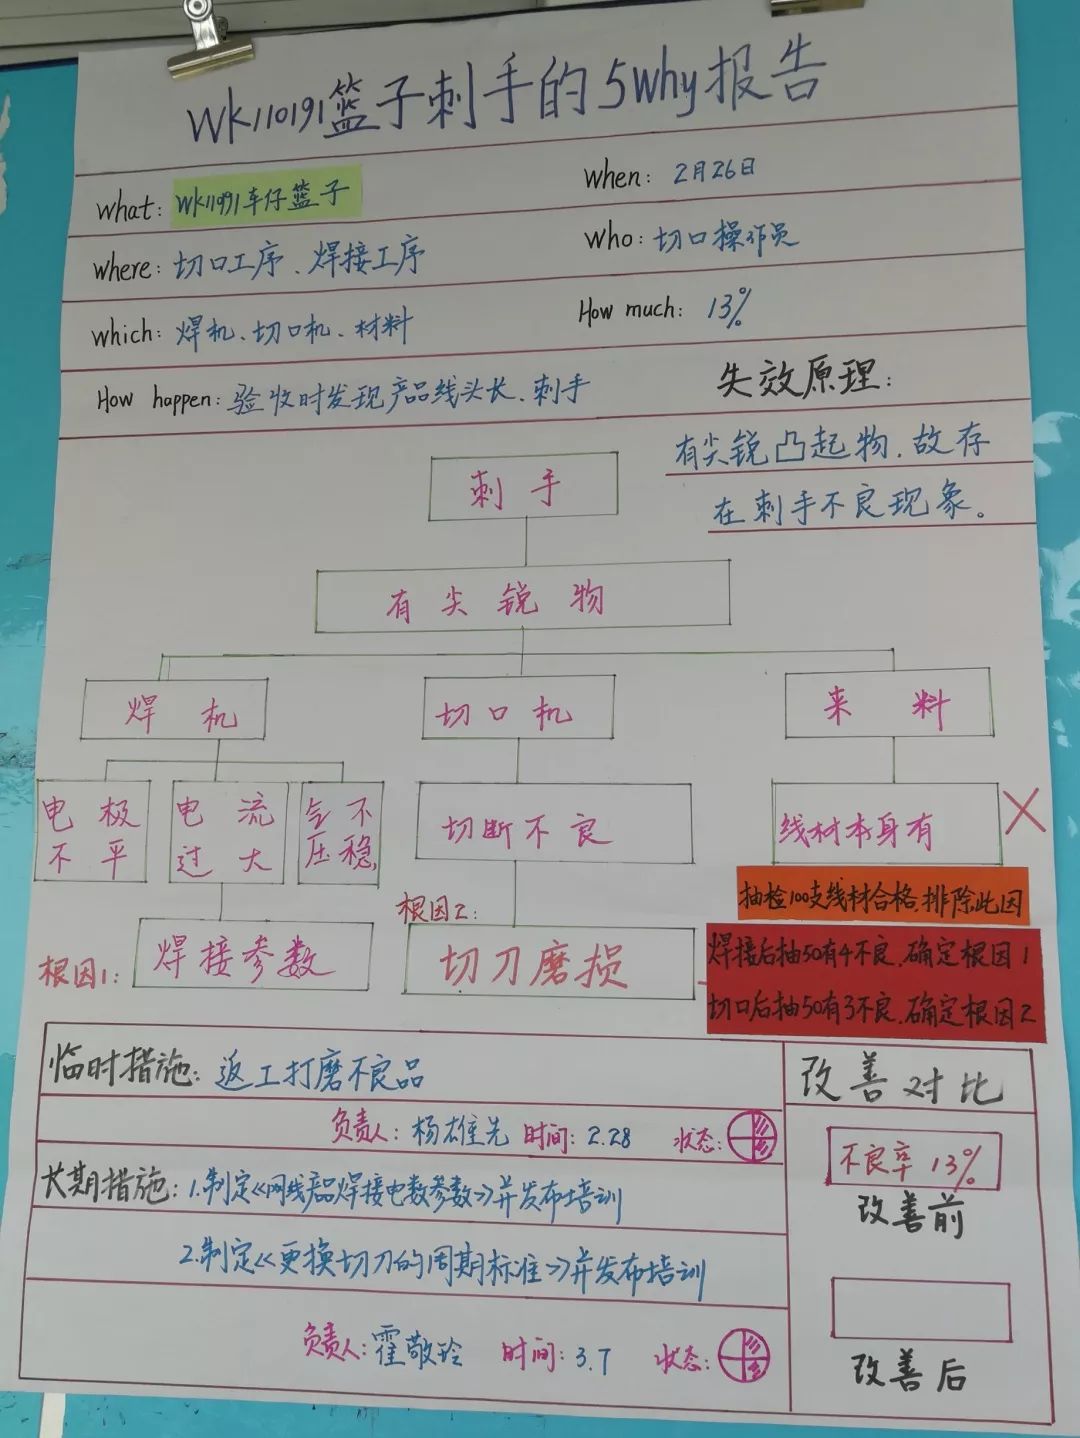 Wk110191篮子刺手的5why报告
what: Wk11991车仔篮子
when: 2月26日
where: 切口工序、焊接工序
who: 切口操作员
which: 焊机、切口机、材料
How much: 13%
How happen: 验收时发现产品线头长、刺手
失效原理:
有尖锐凸起物,故存
在刺手不良现象。
刺手
有尖锐物
焊机
切口机
来料
电极
不平
电流
过大
气不
压稳
切断不良
线材本身有
抽检100支线材合格,排除此因
根因1:
焊接参数
根因2:
切刀磨损
焊接后抽50有4不良,确定根因1
切口后抽50有3不良,确定根因2
临时措施: 返工打磨不良品
负责人: 杨雄先 时间: 2.28 状态:
长期措施: 1.制定《网线产品焊接电数参数》并发布培训
2.制定《更换切刀的周期标准》并发布培训
负责人: 霍敬玲 时间: 3.7 状态:
改善对比
不良率13%
改善前
改善后